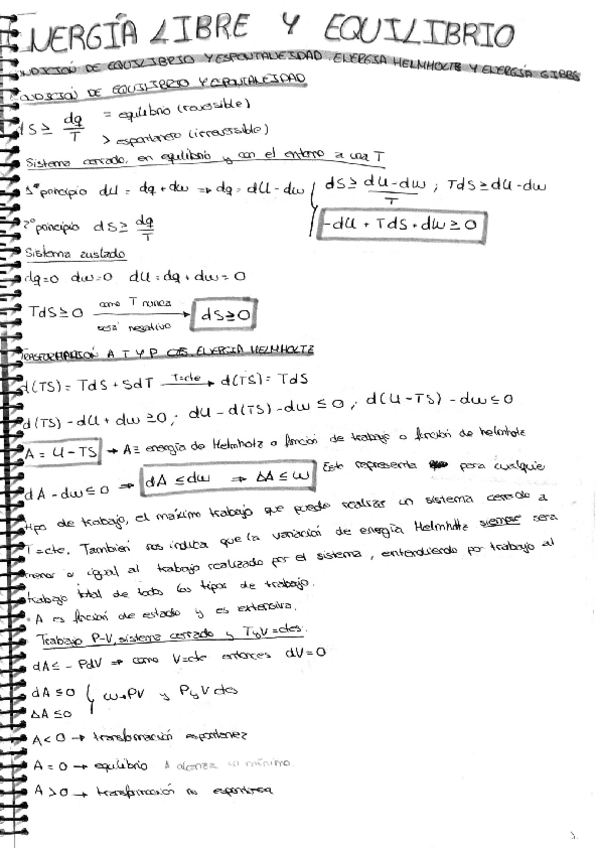 NERGÍA LIBRE Y EQUILIBRIO
NDICIÓN DE EQUILIBRIO Y ESPONTANEIDAD. ENERGÍA HELMHOLTZ Y ENERGÍA GIBBS
ONDICIÓN DE EQUILIBRIO Y ESPONTANEIDAD
dS ≥ dq/T = equilibrio (reversible)
> espontáneo (irreversible)
Sistema cerrado, en equilibrio y con el entorno a una T
1º principio dU = dq + dw ⇒ dq = dU - dw / dS ≥ dU-dw/T ; TdS ≥ dU - dw
2º principio dS ≥ dq/T -dU + TdS + dw ≥ 0
Sistema aislado
dq=0 dw=0 dU = dq + dw = 0
TdS ≥ 0 como T nunca será negativo → dS ≥ 0
TRANSFORMACIÓN A T Y P CTES. ENERGÍA HELMHOLTZ
d(TS) = TdS + SdT T=cte → d(TS) = TdS
d(TS) - dU + dw ≥ 0 ; dU - d(TS) - dw ≤ 0 ; d(U-TS) - dw ≤ 0
A = U - TS → A ≡ energía de Helmholtz o función de trabajo o función de helmholtz
dA - dw ≤ 0 ⇒ dA ≤ dw ⇒ ΔA ≤ w Este representa para cualquier
tipo de trabajo, el máximo trabajo que puede realizar un sistema cerrado a
T = cte. También nos indica que la variación de energía Helmholtz siempre será
menor o igual al trabajo realizado por el sistema, entendiendo por trabajo al
trabajo total de todos los tipos de trabajo.
· A es función de estado y es extensiva.
Trabajo P-V, sistema cerrado y T y V = ctes.
dA ≤ - PdV ⇒ como V=cte entonces dV = 0
dA ≤ 0 { w → PV y P y V ctes
ΔA ≤ 0
A < 0 → transformación espontánea
A = 0 → equilibrio A alcanza un mínimo
A > 0 → transformación no espontánea